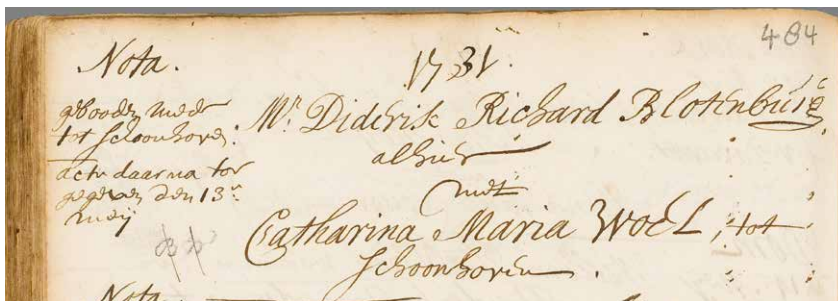 484
Nota.
1731.
gebooden mede
tot Schoonhoven.
acte daarna toe
gegeven den 13en
meij
Mr. Diderik Richard Blotenburg
alhier
met
Catharina Maria Woel, tot
Schoonhoven.
Nota